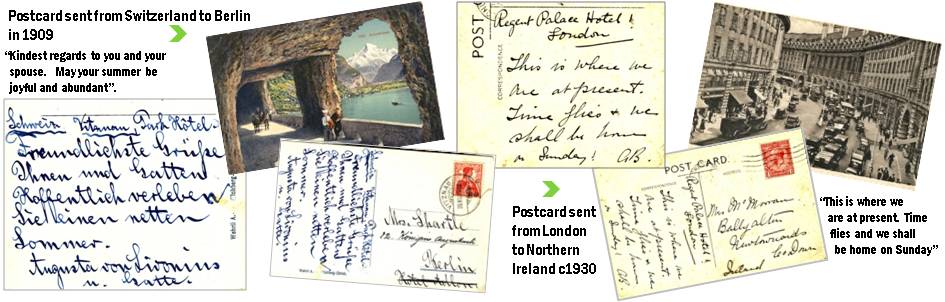 Postcard sent from Switzerland to Berlin
in 1909
“Kindest regards to you and your
spouse. May your summer be
joyful and abundant”.
Schweiz Vitznau, Park Hôtel.
Freundlichste Grüße
Ihnen und Gatten
Hoffentlich verleben
Sie einen netten
Sommer.
Augusta von Livonius
u. Gatte.
POST
CORRESPONDENCE
Regent Palace Hotel!
London
This is where we
are at present.
Time flies & we
shall be home
on Sunday! AB.
Berlin
Postcard sent
from London
to Northern
Ireland c1930
POST CARD.
Regent Palace Hotel!
London
This is where we
are at present.
Time flies & we
shall be home
on Sunday! AB.
Mrs McMorran
Ballyaltin
Newtownards
Co Down
Ireland
“This is where we
are at present. Time
flies and we shall
be home on Sunday”